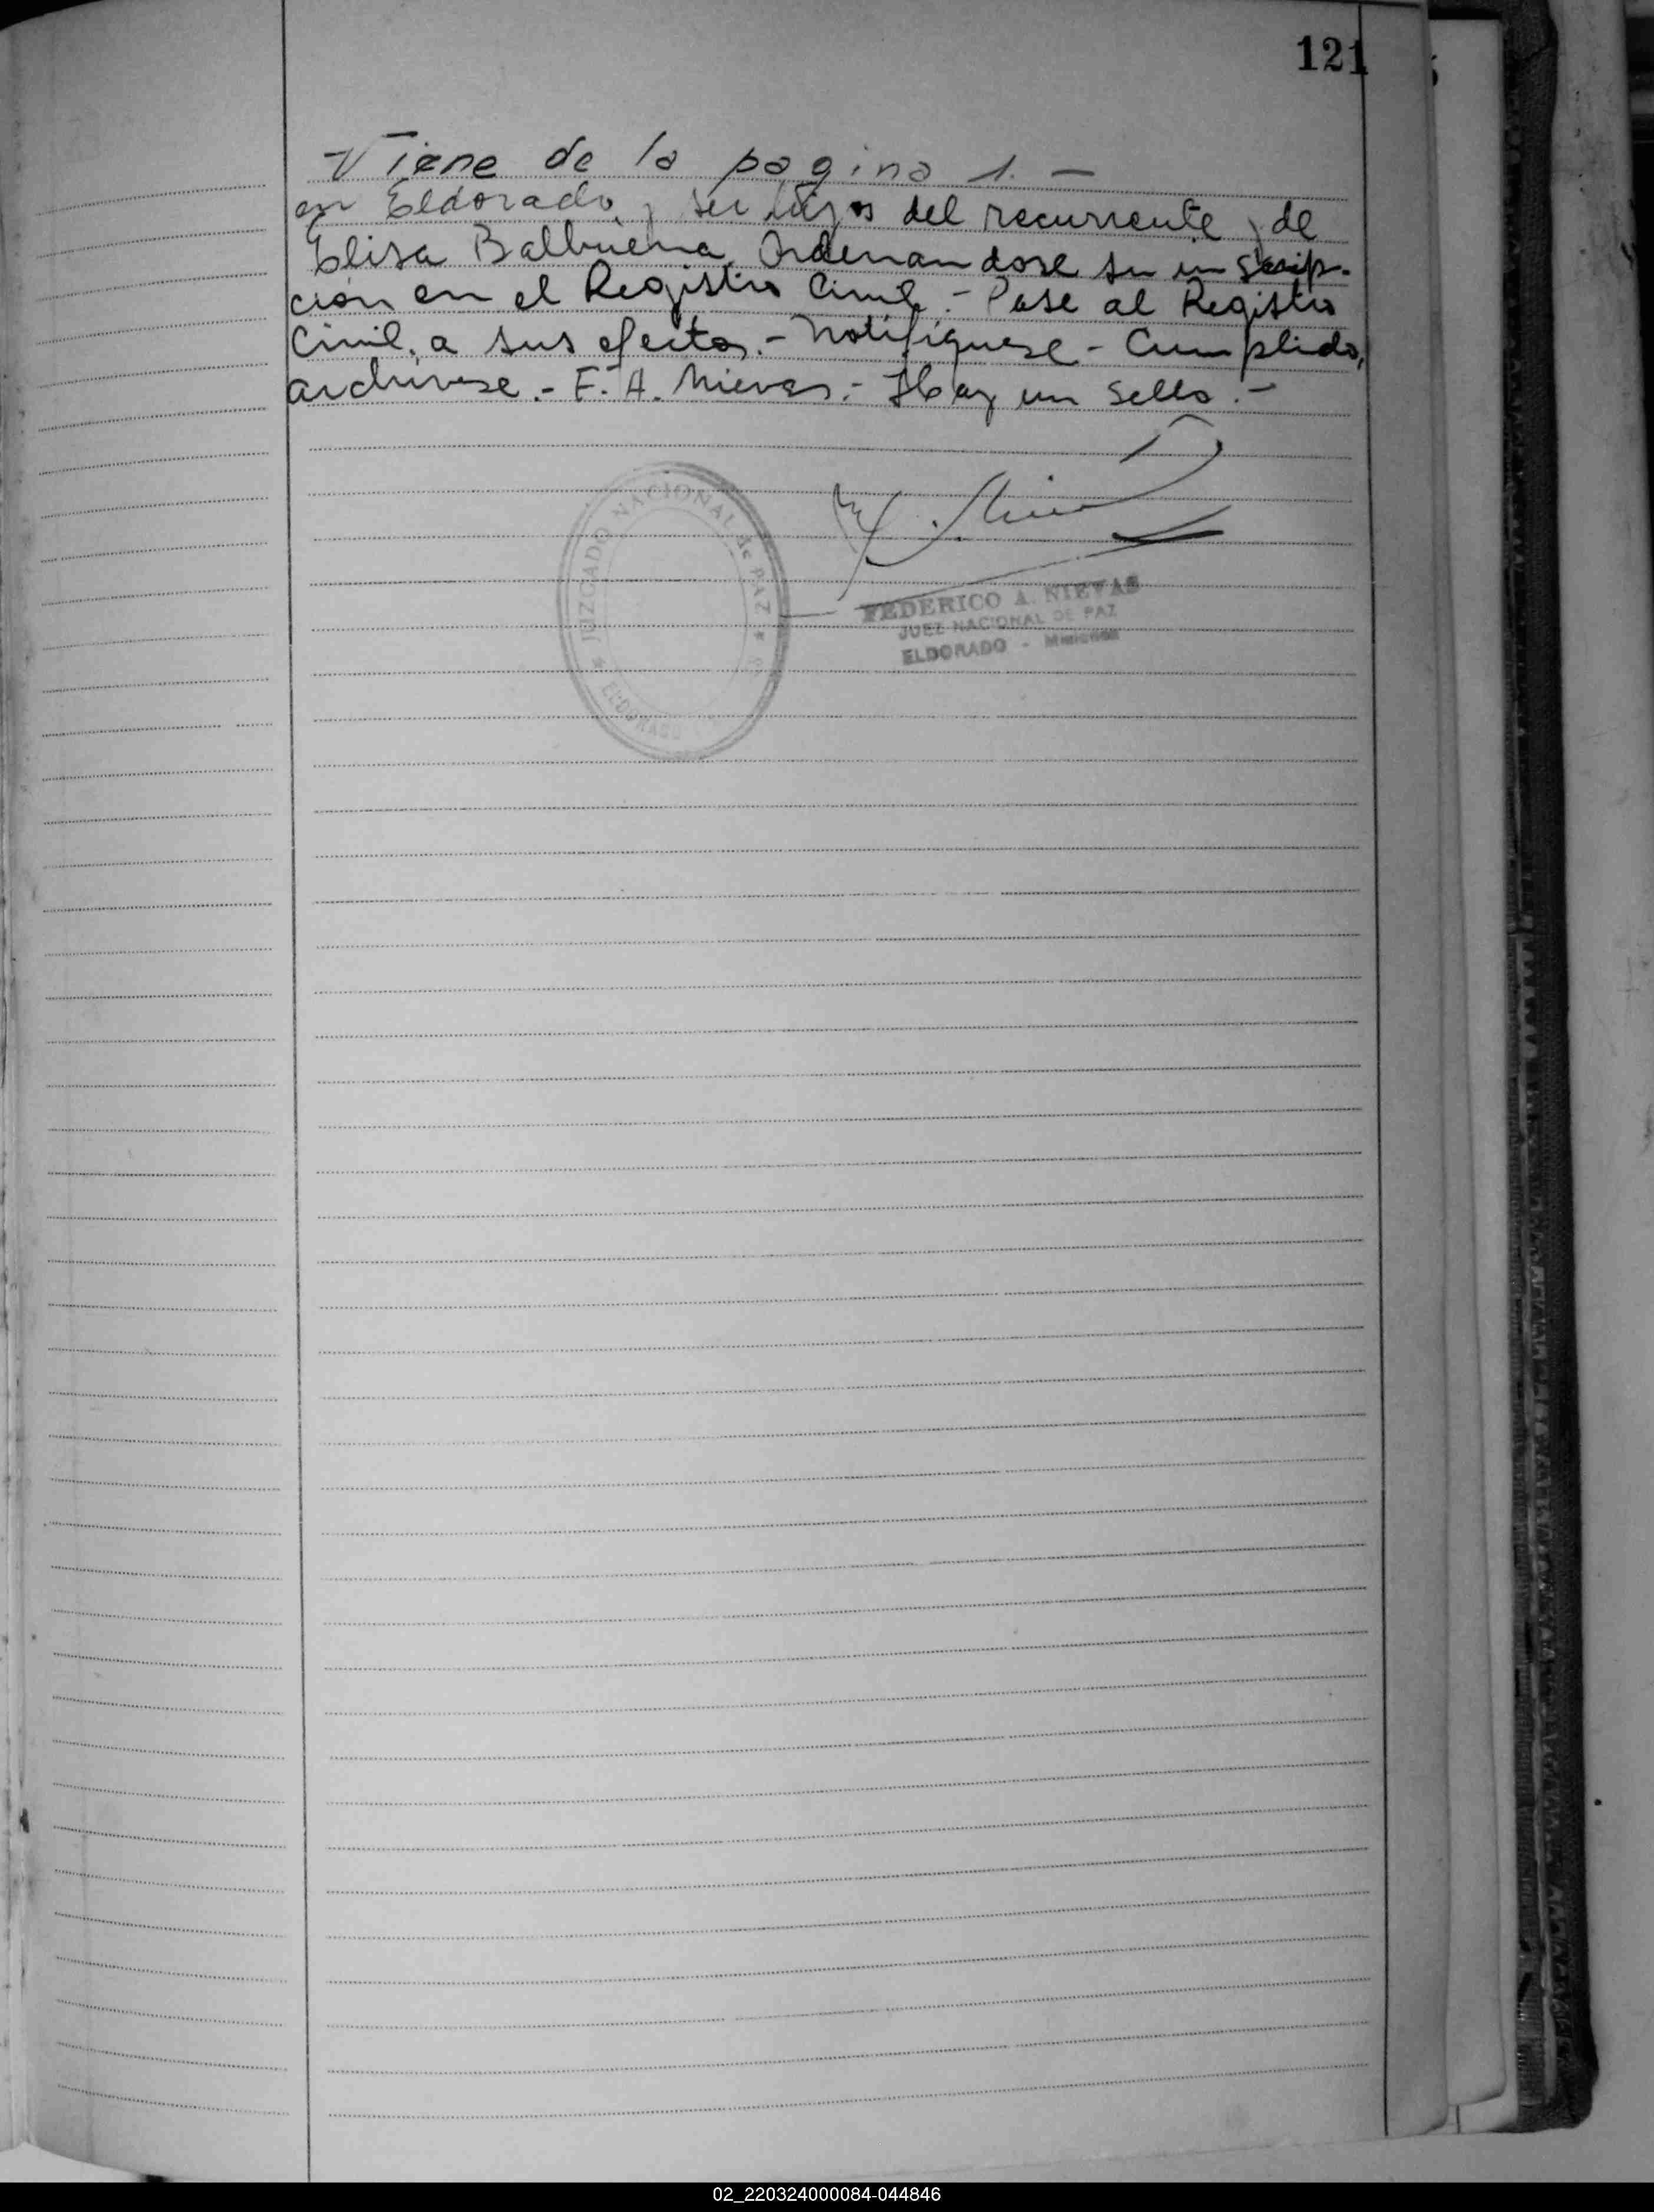 121
Viene de la pagina 1. —
en Eldorado, y ser hijos del recurrente y de
Elisa Balbuena, Ordenandose su inscrip-
ción en el Registro Civil. - Pase al Registro
Civil, a sus efectos. - Notifíquese - Cumplido,
archivese. - F. A. Nievas. - Hay un sello. -
JUZGADO NACIONAL de PAZ
ELDORADO
FEDERICO A. NIEVAS
JUEZ NACIONAL DE PAZ
ELDORADO - Misiones
02_220324000084-044846